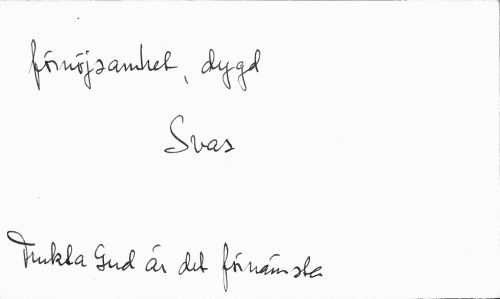 förnöjsamhet, dygd
Svas
Frukta Gud är det förnämsta